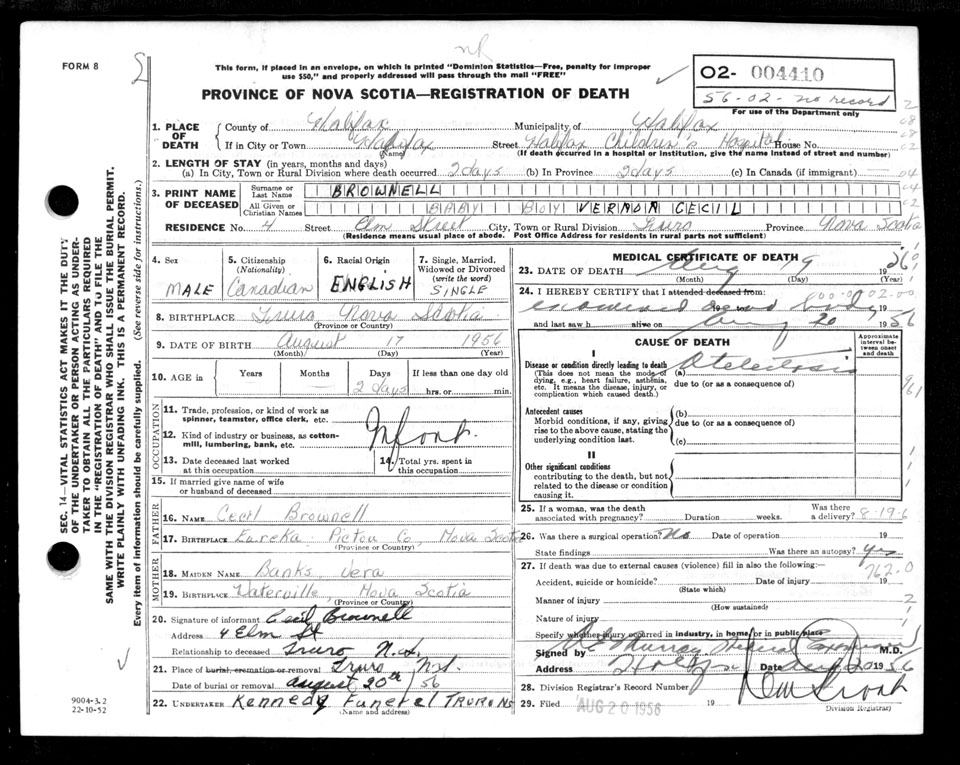 nR
FORM 8
This form, if placed in an envelope, on which is printed "Dominion Statistics—Free, penalty for improper
use $50," and properly addressed will pass through the mail "FREE"
02- 004410
56-02-no record
For use of the Department only
PROVINCE OF NOVA SCOTIA—REGISTRATION OF DEATH
1. PLACE OF DEATH
County of Halifax Municipality of Halifax
If in City or Town Halifax (Name) Street Halifax Children's Hospital House No.
(If death occurred in a hospital or institution, give the name instead of street and number)
2. LENGTH OF STAY (in years, months and days)
(a) In City, Town or Rural Division where death occurred 2 days (b) In Province 2 days (c) In Canada (if immigrant)
3. PRINT NAME OF DECEASED
Surname or Last Name BROWNELL
All Given or Christian Names BABY BOY VERNON CECIL
RESIDENCE No. 4 Street Elm Street City, Town or Rural Division Truro Province Nova Scotia
(Residence means usual place of abode. Post Office Address for residents in rural parts not sufficient)
4. Sex MALE
5. Citizenship (Nationality) Canadian
6. Racial Origin ENGLISH
7. Single, Married, Widowed or Divorced (write the word) SINGLE
8. BIRTHPLACE Truro Nova Scotia
(Province or Country)
9. DATE OF BIRTH August 17 1956
(Month) (Day) (Year)
10. AGE in Years Months Days 2 days If less than one day old hrs. or min.
OCCUPATION
11. Trade, profession, or kind of work as spinner, teamster, office clerk, etc.
12. Kind of industry or business, as cotton-mill, lumbering, bank, etc. Infant.
13. Date deceased last worked at this occupation
14. Total yrs. spent in this occupation
15. If married give name of wife or husband of deceased
FATHER
16. NAME Cecil Brownell
17. BIRTHPLACE Eureka Pictou Co, Nova Scotia
(Province or Country)
MOTHER
18. MAIDEN NAME Banks, Vera
19. BIRTHPLACE Waterville Nova Scotia
(Province or Country)
20. Signature of informant Cecil Brownell
Address 4 Elm St
Relationship to deceased Truro N.S.
21. Place of burial, cremation or removal Truro N.S.
Date of burial or removal August 20th 56
22. UNDERTAKER Kennedy Funeral TRURO NS
(Name and address)
MEDICAL CERTIFICATE OF DEATH
23. DATE OF DEATH Aug 19 1956
(Month) (Day) (Year)
24. I HEREBY CERTIFY that I attended deceased from:
examined body
and last saw h alive on Aug 20 1956
CAUSE OF DEATH
Approximate interval between onset and death
I
Disease or condition directly leading to death (a) Atelectasis
(This does not mean the mode of dying, e.g., heart failure, asthenia, etc. It means the disease, injury, or complication which caused death.) due to (or as a consequence of)
Antecedent causes (b)
Morbid conditions, if any, giving rise to the above cause, stating the underlying condition last. due to (or as a consequence of)
(c)
II
Other significant conditions
contributing to the death, but not related to the disease or condition causing it.
25. If a woman, was the death associated with pregnancy? Duration weeks. Was there a delivery? 8-19-6
26. Was there a surgical operation? No Date of operation 19
State findings Was there an autopsy? Yes
27. If death was due to external causes (violence) fill in also the following:— 762.0
Accident, suicide or homicide? Date of injury 19
(State which)
Manner of injury
(How sustained)
Nature of injury
Specify whether injury occurred in industry, in home, or in public place
Signed by Murray Medical Examiner M.D.
Address Halifax Date Aug 20 1956
28. Division Registrar's Record Number
29. Filed AUG 20 1956 19
Division Registrar
SEC. 14—VITAL STATISTICS ACT MAKES IT THE DUTY
OF THE UNDERTAKER OR PERSON ACTING AS UNDER-
TAKER TO OBTAIN ALL THE PARTICULARS REQUIRED
IN THE "REGISTRATION OF DEATH" AND TO FILE THE
SAME WITH THE DIVISION REGISTRAR WHO SHALL ISSUE THE BURIAL PERMIT.
WRITE PLAINLY WITH UNFADING INK. THIS IS A PERMANENT RECORD.
Every item of information should be carefully supplied. (See reverse side for instructions.)
9004-3.2
22-10-52